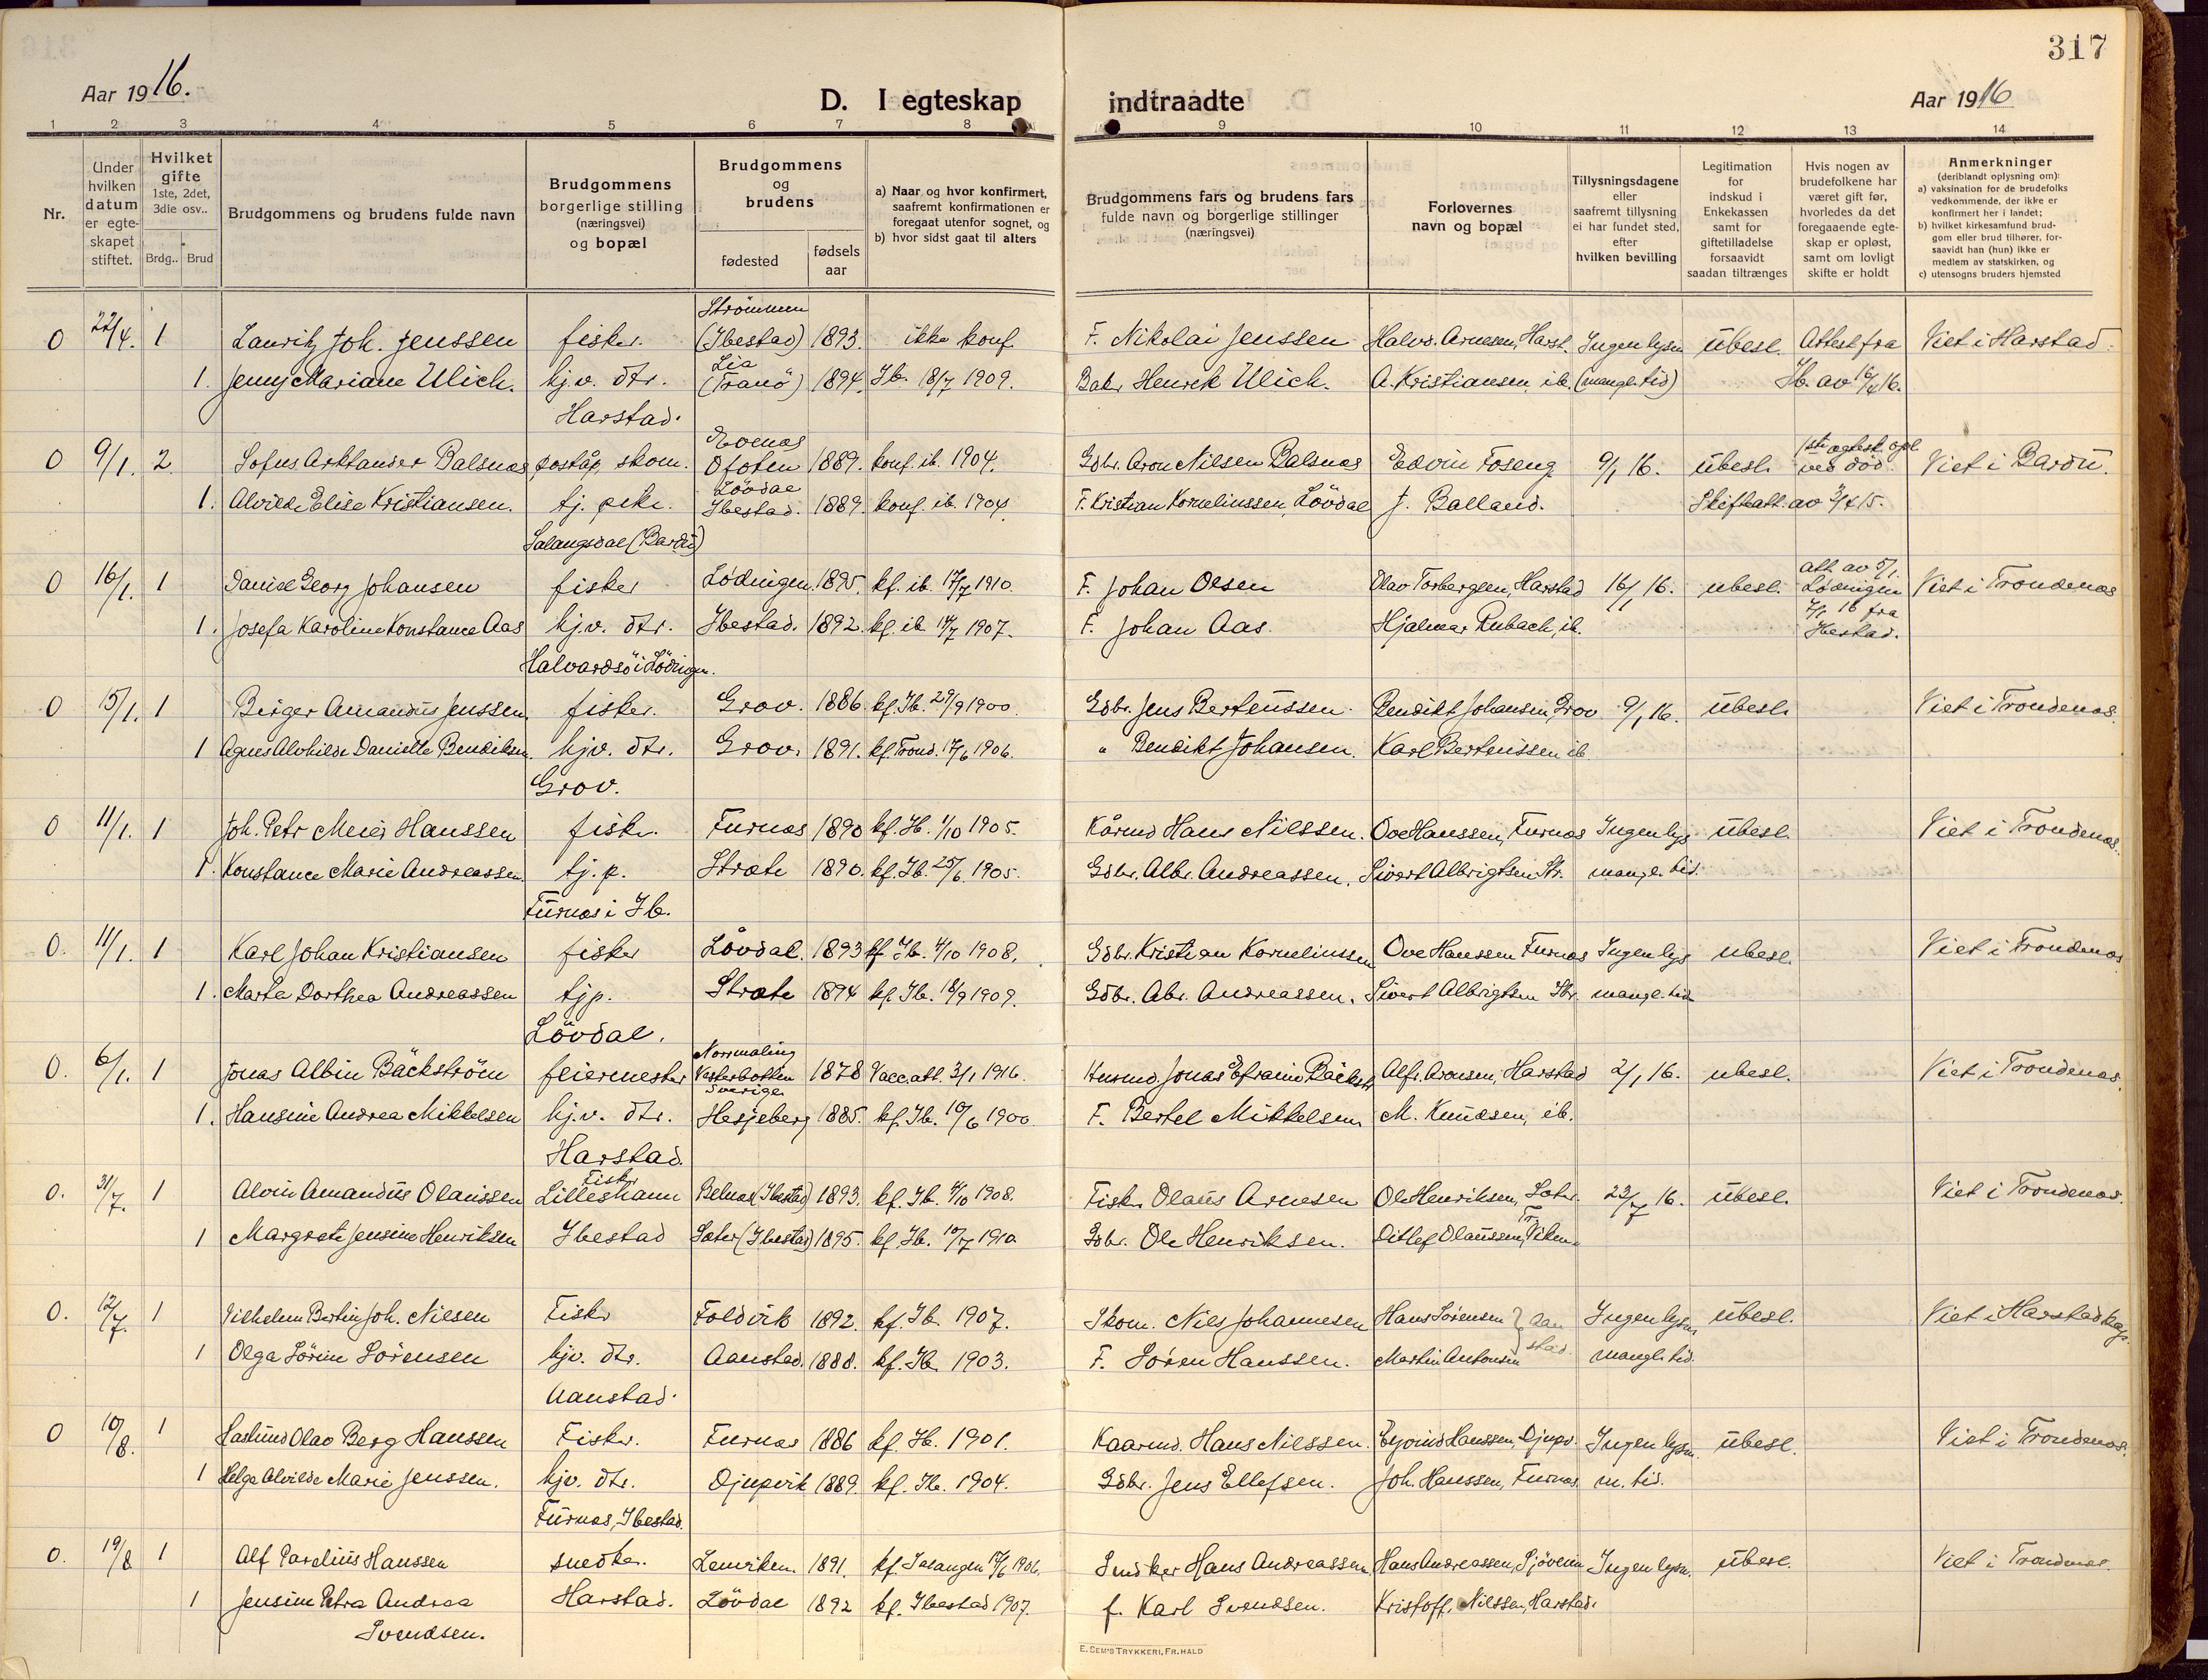 317
Aar 1916.
D. I egteskap indtraadte
Aar 1916
1 2 3 4 5 6 7 8 9 10 11 12 13 14
Nr.
Under hvilken datum er egte-skapet stiftet.
Hvilket gifte 1ste, 2det, 3die osv..
Brdg.. Brud
Brudgommens og brudens fulde navn
Brudgommens borgerlige stilling (næringsvei) og bopæl
Brudgommens og brudens
fødested
fødsels aar
a) Naar og hvor konfirmert, saafremt konfirmationen er foregaat utenfor sognet, og
b) hvor sidst gaat til alters
Brudgommens fars og brudens fars fulde navn og borgerlige stillinger (næringsvei)
Forlovernes navn og bopæl
Tillysningsdagene eller saafremt tillysning ei har fundet sted, efter hvilken bevilling
Legitimation for indskud i Enkekassen samt for giftetilladelse forsaavidt saadan tiltrænges
Hvis nogen av brudefolkene har været gift før, hvorledes da det foregaaende egte-skap er opløst, samt om lovligt skifte er holdt
Anmerkninger (deriblandt oplysning om):
a) vaksination for de brudefolks vedkommende, der ikke er konfirmert her i landet;
b) hvilket kirkesamfund brud-gom eller brud tilhører, for-saavidt han (hun) ikke er medlem av statskirken, og
c) utensogns bruders hjemsted
0 22/4. 1 Lauritz Joh. Jenssen fisker. Strömmen (Ibestad) 1893. ikke konf. F. Nikolai Jenssen Halvd. Arnesen, Harst. Ingen lysn. übesl. Attest fra Viet i Harstad.
1. Jenny Mariane Ulich. hj.v. dtr. Lia (Tranö) 1894. Ib. 18/7 1909. Henrik Ulich. A. Kristiansen, ib. (mangl. tid) Ib. av 16/4 16.
Harstad.
0 9/1. 2. Sofus Arktander Balsnes skom. Ofoten 1889. konf. ib. 1904. Gdbr. Aron Nilsen Balsnes Edvin Foseng 9/1 16. übesl. ved död. Viet i Bardu.
1. Alvilde Elise Kristiansen. tj. pike. Lövdal Ibestad. 1889. konf. ib. 1904. F. Kristian Korneliussen, Lövdal J. Balland. Skifteatt. av
Salangsdal (Bardü)
0 16/1. 1 Daniel Georg Johansen fisker Lödingen 1895. kf. ib. 17/7 1910. F. Johan Olsen Olav Torbergsen, Harstad 16/1 16. ubesl. att. av 5/1. Lödingen Viet i Trondenes
1. Josefa Karoline Konstance Aas hj.v. dtr. Ibestad. 1892. kf. ib. 14/7 1907. F. Johan Aas. Hjalmar Rubach, ib. 7/1 16 fra Ibestad.
Halvardsö i Lödingen.
0 15/1. 1 Birger Amandüs Jenssen fisker. Grov. 1886. kf. Ib. 29/9 1900. Gdbr. Jens Berteüssen. Bendikt Johansen, Grov 9/1 16. übesl. Viet i Trondenes.
1 Agnes Alvhilde Danielle Bendiksen. hjv. dtr. Grov. 1891. kf. Trond. 17/6 1906. " Bendikt Johansen. Karl Berteüssen ib.
Grov.
0 11/1. 1 Joh. Petr Meier Hanssen fisker. Furnes 1890 kf. Ib. 1/10 1905. Kårmd Hans Nilssen. Ove Hanssen, Furnes Ingen lys übesl. Viet i Trondenes.
1. Konstance Marie Andreassen. tj.p. Stræte 1890. kf. Ib. 25/6 1905. Gdbr. Albr. Andreassen. Sivert Albrigtsen Str. mangl. tid.
Fürnes i Ib.
0. 11/1. 1 Karl Johan Kristiansen fisker Lövdal. 1893 kf. Ib. 4/10 1908. Gdbr. Kristian Korneliussen Ove Hanssen Furnes Ingen lys ubesl. Viet i Trondenes
1. Marta Dorthea Andreassen tjp. Stræte 1894 kf. Ib. 18/9 1909. Gdbr. Abr. Andreassen. Sivert Albrigtsen Str. mangl. tid
Lövdal.
0. 6/1. 1 Jonas Albin Bäckström feiermester Normaling Vesterbotten Sverige 1878 Vacc.att. 3/1 1916. Husmd. Jonas Efraim Bäckstr. Alfr. Aronsen, Harstad 2/1 16. ubesl. Viet i Trondenes.
1. Hansine Andrea Mikkelsen hj.v. dtr. Hesjeberg 1885. kf. Ib. 10/6 1900. F. Bertel Mikkelsen M. Knudsen, ib.
Harstad.
0. 31/7. 1 Alvin Amandüs Olaüssen Fisker Lilleshamn Belnes (Ibestad) 1893. kf. Ib. 4/10 1908. Fisker Olaüs Arnesen Ole Henriksen, Sæter 23/7 16. übesl. Viet i Trondenes.
1 Margrete Jensine Henriksen Ibestad Sæter (Ibestad) 1895. kf. Ib. 10/7 1910 Gdbr. Ole Henriksen. Ditlef Olaüssen,
0. 12/7. 1 Vilhelm Bertin Joh. Nilsen Fisker Foldvik 1892. kf. Ib. 1907. Skom. Nils Johannesen Hans Sörensen } Aanstad Ingen lysn. übesl. Viet i Harstad kap.
1 Olga Sörine Sörensen hjv. dtr. Aanstad. 1888. kf. Ib. 1903. F. Sören Hanssen. Martin Antonsen mangl. tid.
Aanstad.
0 10/8. 1 Haslund Olav Berg Hanssen Fisker. Furnes 1886 kf. Ib. 1901. Kaarmd. Hans Nilssen. Eyvind Hanssen, Djupv. Ingen lysn. übesl. Viet i Trondenes.
1 Helga Alvilde Marie Jenssen. hjv. dtr. Djupvik 1889. kf. Ib. 1904. Gdbr. Jens Ellefsen. Joh. Hanssen, Furnes. m. tid.
Fürnes, Ibestad.
0. 19/8 1 Alf Parelius Hanssen snedker. Lenviken. 1891. kf. Salangen 17/6 1906. Snedker Hans Andreassen. Hans Andreassen, Sjövein Ingen lysn. übesl. Viet i Trondenes.
1 Jensine Petra Andrea Svendsen. Harstad. Lövdal 1892 kf. Ibestad 1907. f. Karl Svendsen. Kristoff. Nilssen, Harstad.
E. SEM'S TRYKKERI, FR. HALD